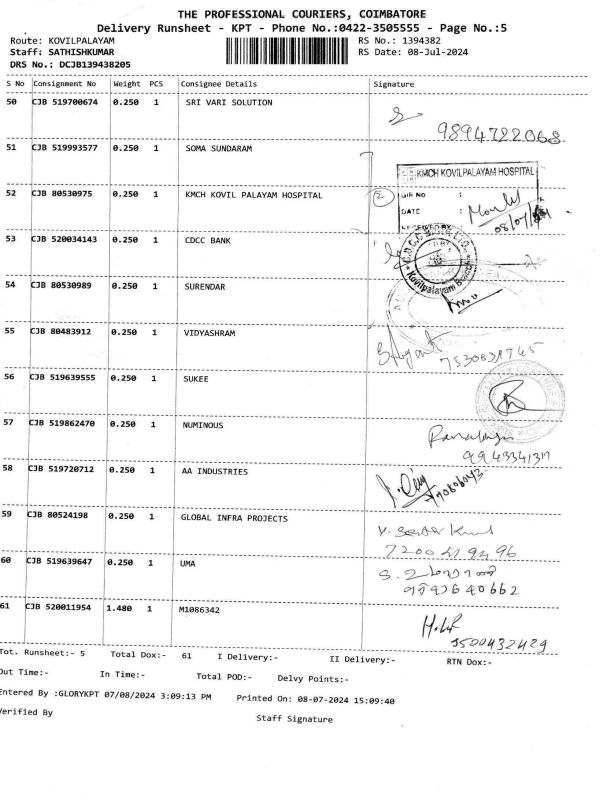 THE PROFESSIONAL COURIERS, COIMBATORE
Delivery Runsheet - KPT - Phone No.:0422-3505555 - Page No.:5
Route: KOVILPALAYAM RS No.: 1394382
Staff: SATHISHKUMAR RS Date: 08-Jul-2024
DRS No.: DCJB139438205
S No Consignment No Weight PCS Consignee Details Signature
50 CJB 519700674 0.250 1 SRI VARI SOLUTION
9894722068
51 CJB 519993577 0.250 1 SOMA SUNDARAM
KMCH KOVILPALAYAM HOSPITAL
52 CJB 80530975 0.250 1 KMCH KOVIL PALAYAM HOSPITAL 2
DATE :
RECEIVED BY
53 CJB 520034143 0.250 1 CDCC BANK
Kovilpalayam Branch
54 CJB 80530989 0.250 1 SURENDAR
55 CJB 80483912 0.250 1 VIDYASHRAM
56 CJB 519639555 0.250 1 SUKEE
57 CJB 519862470 0.250 1 NUMINOUS
58 CJB 519720712 0.250 1 AA INDUSTRIES
59 CJB 80524198 0.250 1 GLOBAL INFRA PROJECTS
60 CJB 519639647 0.250 1 UMA
61 CJB 520011954 1.480 1 M1086342
9500432429
Tot. Runsheet:- 5 Total Dox:- 61 I Delivery:- II Delivery:- RTN Dox:-
Out Time:- In Time:- Total POD:- Delvy Points:-
Entered By :GLORYKPT 07/08/2024 3:09:13 PM Printed On: 08-07-2024 15:09:40
Verified By Staff Signature